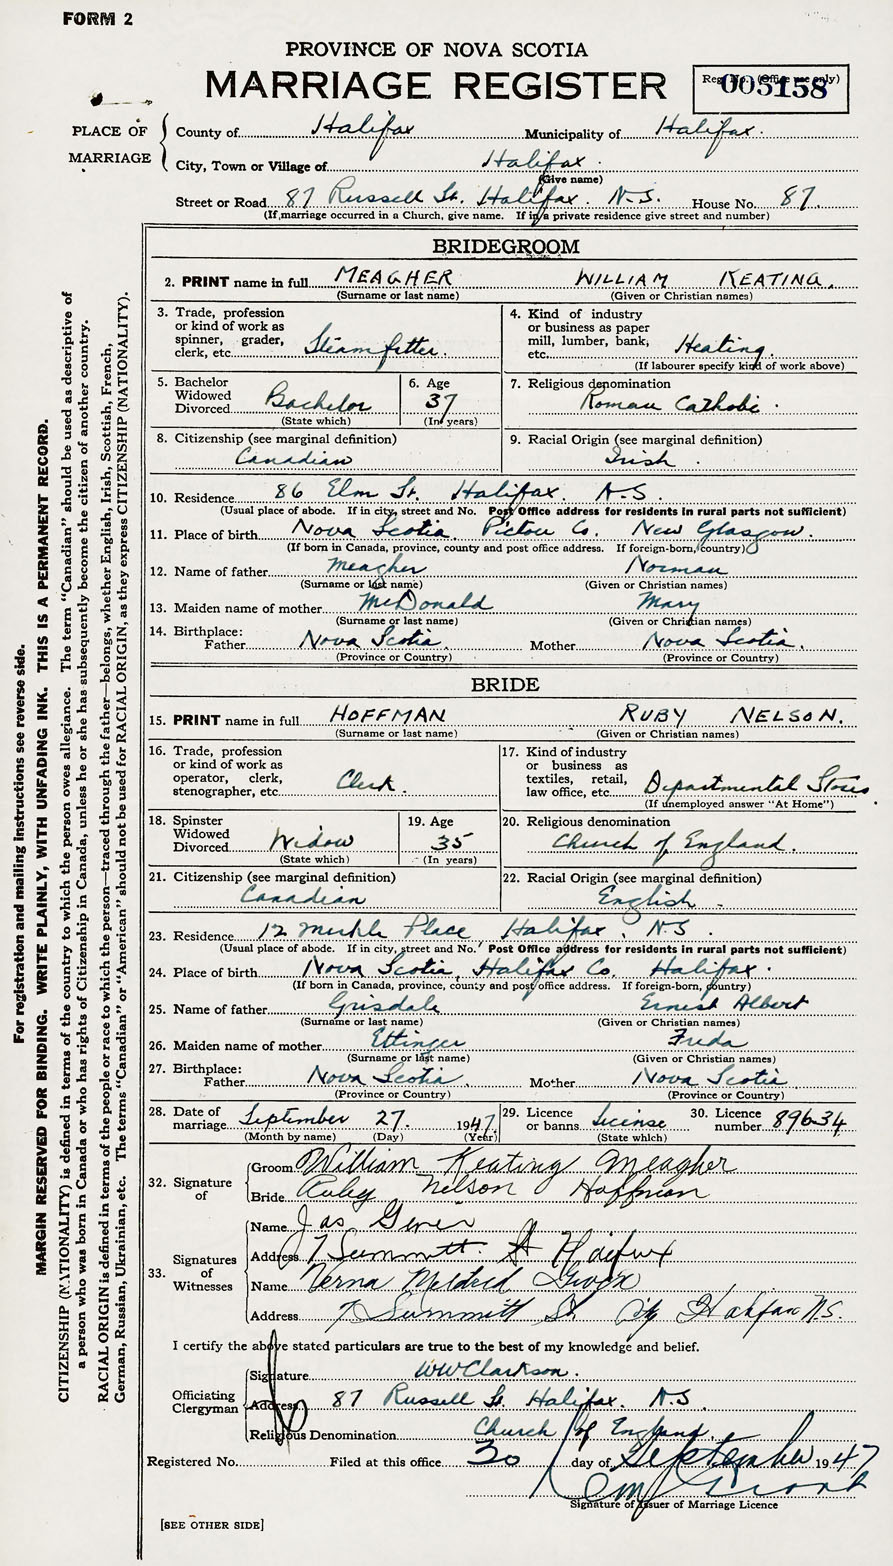 FORM 2
PROVINCE OF NOVA SCOTIA
MARRIAGE REGISTER
Reg. No. (Office use only)
005158
PLACE OF MARRIAGE
County of Halifax Municipality of Halifax.
City, Town or Village of Halifax.
(Give name)
Street or Road 87 Russell St. Halifax. N-S. House No. 87.
(If marriage occurred in a Church, give name. If in a private residence give street and number)
BRIDEGROOM
2. PRINT name in full MEAGHER WILLIAM KEATING.
(Surname or last name) (Given or Christian names)
3. Trade, profession or kind of work as spinner, grader, clerk, etc. Steamfitter.
4. Kind of industry or business as paper mill, lumber, bank, etc. Heating.
(If labourer specify kind of work above)
5. Bachelor Widowed Divorced Bachelor
(State which)
6. Age 37
(In years)
7. Religious denomination
Roman Catholic.
8. Citizenship (see marginal definition)
Canadian
9. Racial Origin (see marginal definition)
Irish.
10. Residence 86 Elm St. Halifax. N-S.
(Usual place of abode. If in city, street and No. Post Office address for residents in rural parts not sufficient)
11. Place of birth Nova Scotia. Pictou Co. New Glasgow.
(If born in Canada, province, county and post office address. If foreign-born, country)
12. Name of father Meagher Norman
(Surname or last name) (Given or Christian names)
13. Maiden name of mother McDonald Mary
(Surname or last name) (Given or Christian names)
14. Birthplace:
Father Nova Scotia. Mother Nova Scotia.
(Province or Country) (Province or Country)
BRIDE
15. PRINT name in full HOFFMAN RUBY NELSON.
(Surname or last name) (Given or Christian names)
16. Trade, profession or kind of work as operator, clerk, stenographer, etc. Clerk.
17. Kind of industry or business as textiles, retail, law office, etc. Departmental Stores.
(If unemployed answer "At Home")
18. Spinster Widowed Divorced Widow
(State which)
19. Age 35
(In years)
20. Religious denomination
Church of England.
21. Citizenship (see marginal definition)
Canadian
22. Racial Origin (see marginal definition)
English.
23. Residence 12 Place Halifax, N-S.
(Usual place of abode. If in city, street and No. Post Office address for residents in rural parts not sufficient)
24. Place of birth Nova Scotia, Halifax Co. Halifax.
(If born in Canada, province, county and post office address. If foreign-born, country)
25. Name of father Grisdale Ernest Albert
(Surname or last name) (Given or Christian names)
26. Maiden name of mother Ettinger Freda
(Surname or last name) (Given or Christian names)
27. Birthplace:
Father Nova Scotia. Mother Nova Scotia
(Province or Country) (Province or Country)
28. Date of marriage September 27. 1947.
(Month by name) (Day) (Year)
29. Licence or banns License
(State which)
30. Licence number 89634
32. Signature of
Groom William Keating Meagher
Bride Ruby Nelson Hoffman
33. Signatures of Witnesses
Name Jas
Address 7 Summitt St Halifax
Name Verna Mildred
Address 7 Summitt St City Halifax N.S.
I certify the above stated particulars are true to the best of my knowledge and belief.
Officiating Clergyman
Signature WW Clarkson.
Address 87 Russell St. Halifax. N.S
Religious Denomination Church of England.
Registered No. Filed at this office 30 day of September 1947
Signature of Issuer of Marriage Licence
[SEE OTHER SIDE]
For registration and mailing instructions see reverse side.
MARGIN RESERVED FOR BINDING. WRITE PLAINLY, WITH UNFADING INK. THIS IS A PERMANENT RECORD.
CITIZENSHIP (NATIONALITY) is defined in terms of the country to which the person owes allegiance. The term "Canadian" should be used as descriptive of
a person who was born in Canada or who has rights of Citizenship in Canada, unless he or she has subsequently become the citizen of another country.
RACIAL ORIGIN is defined in terms of the people or race to which the person—traced through the father—belongs, whether English, Irish, Scottish, French,
German, Russian, Ukrainian, etc. The terms "Canadian" or "American" should not be used for RACIAL ORIGIN, as they express CITIZENSHIP (NATIONALITY).